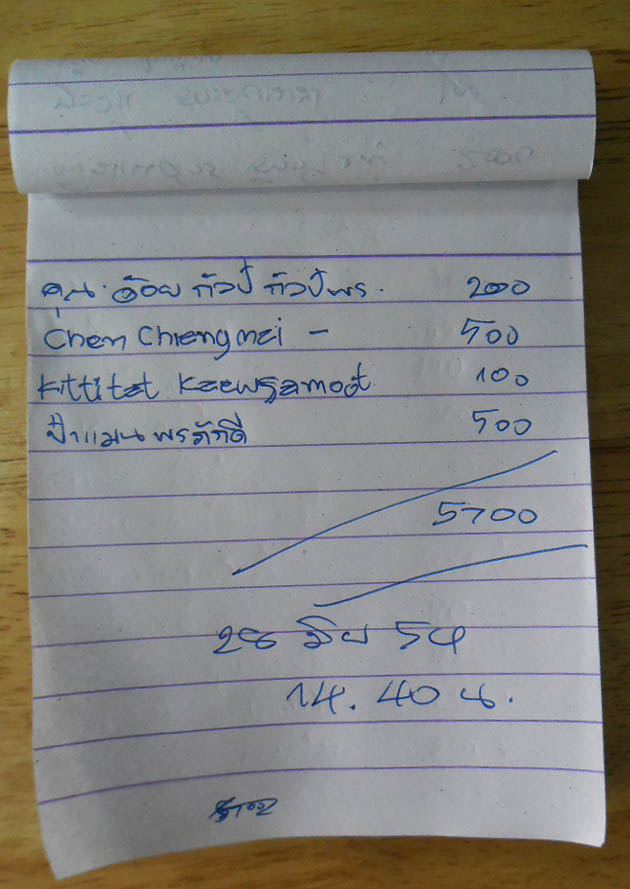 คุณ อ้อย ก้อปี ก้อปีพร. 200
Chem Chiengmai - 500
Kittitat Kaewsamoot 100
ป้าแมน พรภักดี 500
5700
28 มิย 54
14.40 น.